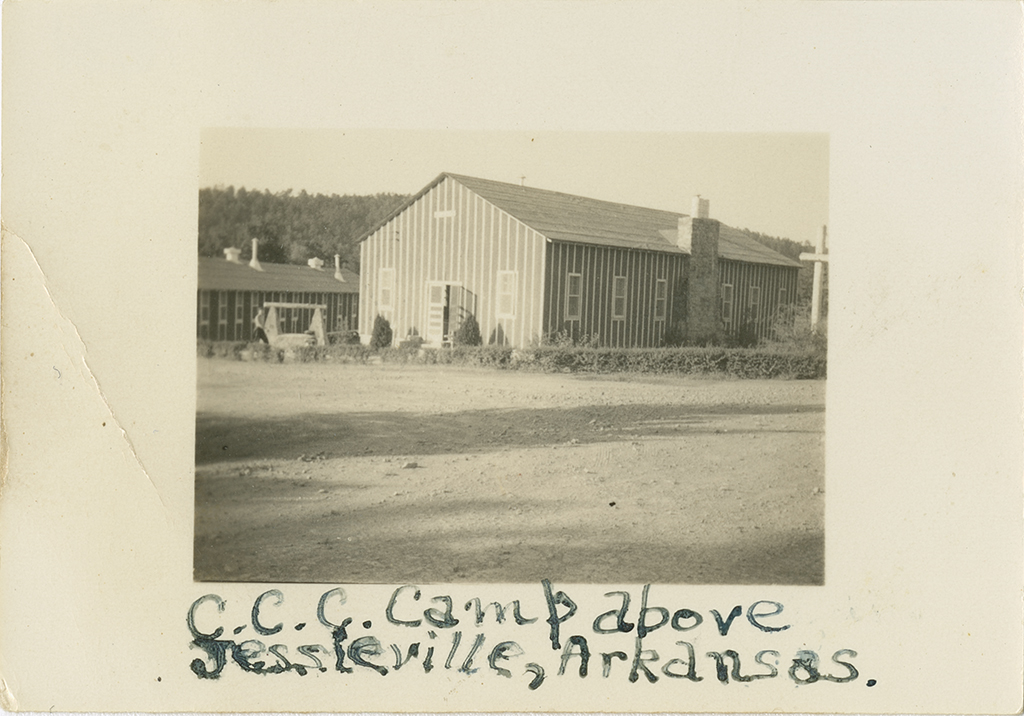 C.C.C. Camp above
Jessieville, Arkansas.